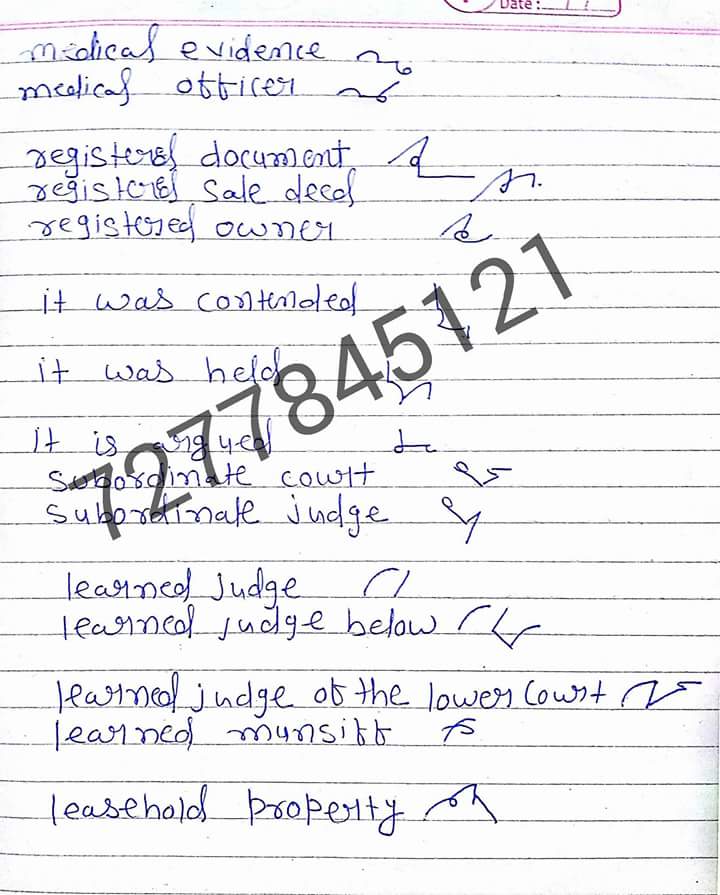 Date :
medical evidence
medical officer
registered document
registered sale deed
registered owner
it was contended
it was held
it is argued
subordinate court
subordinate judge
learned judge
learned judge below
learned judge of the lower court
learned munsiff
leasehold property
7277845121